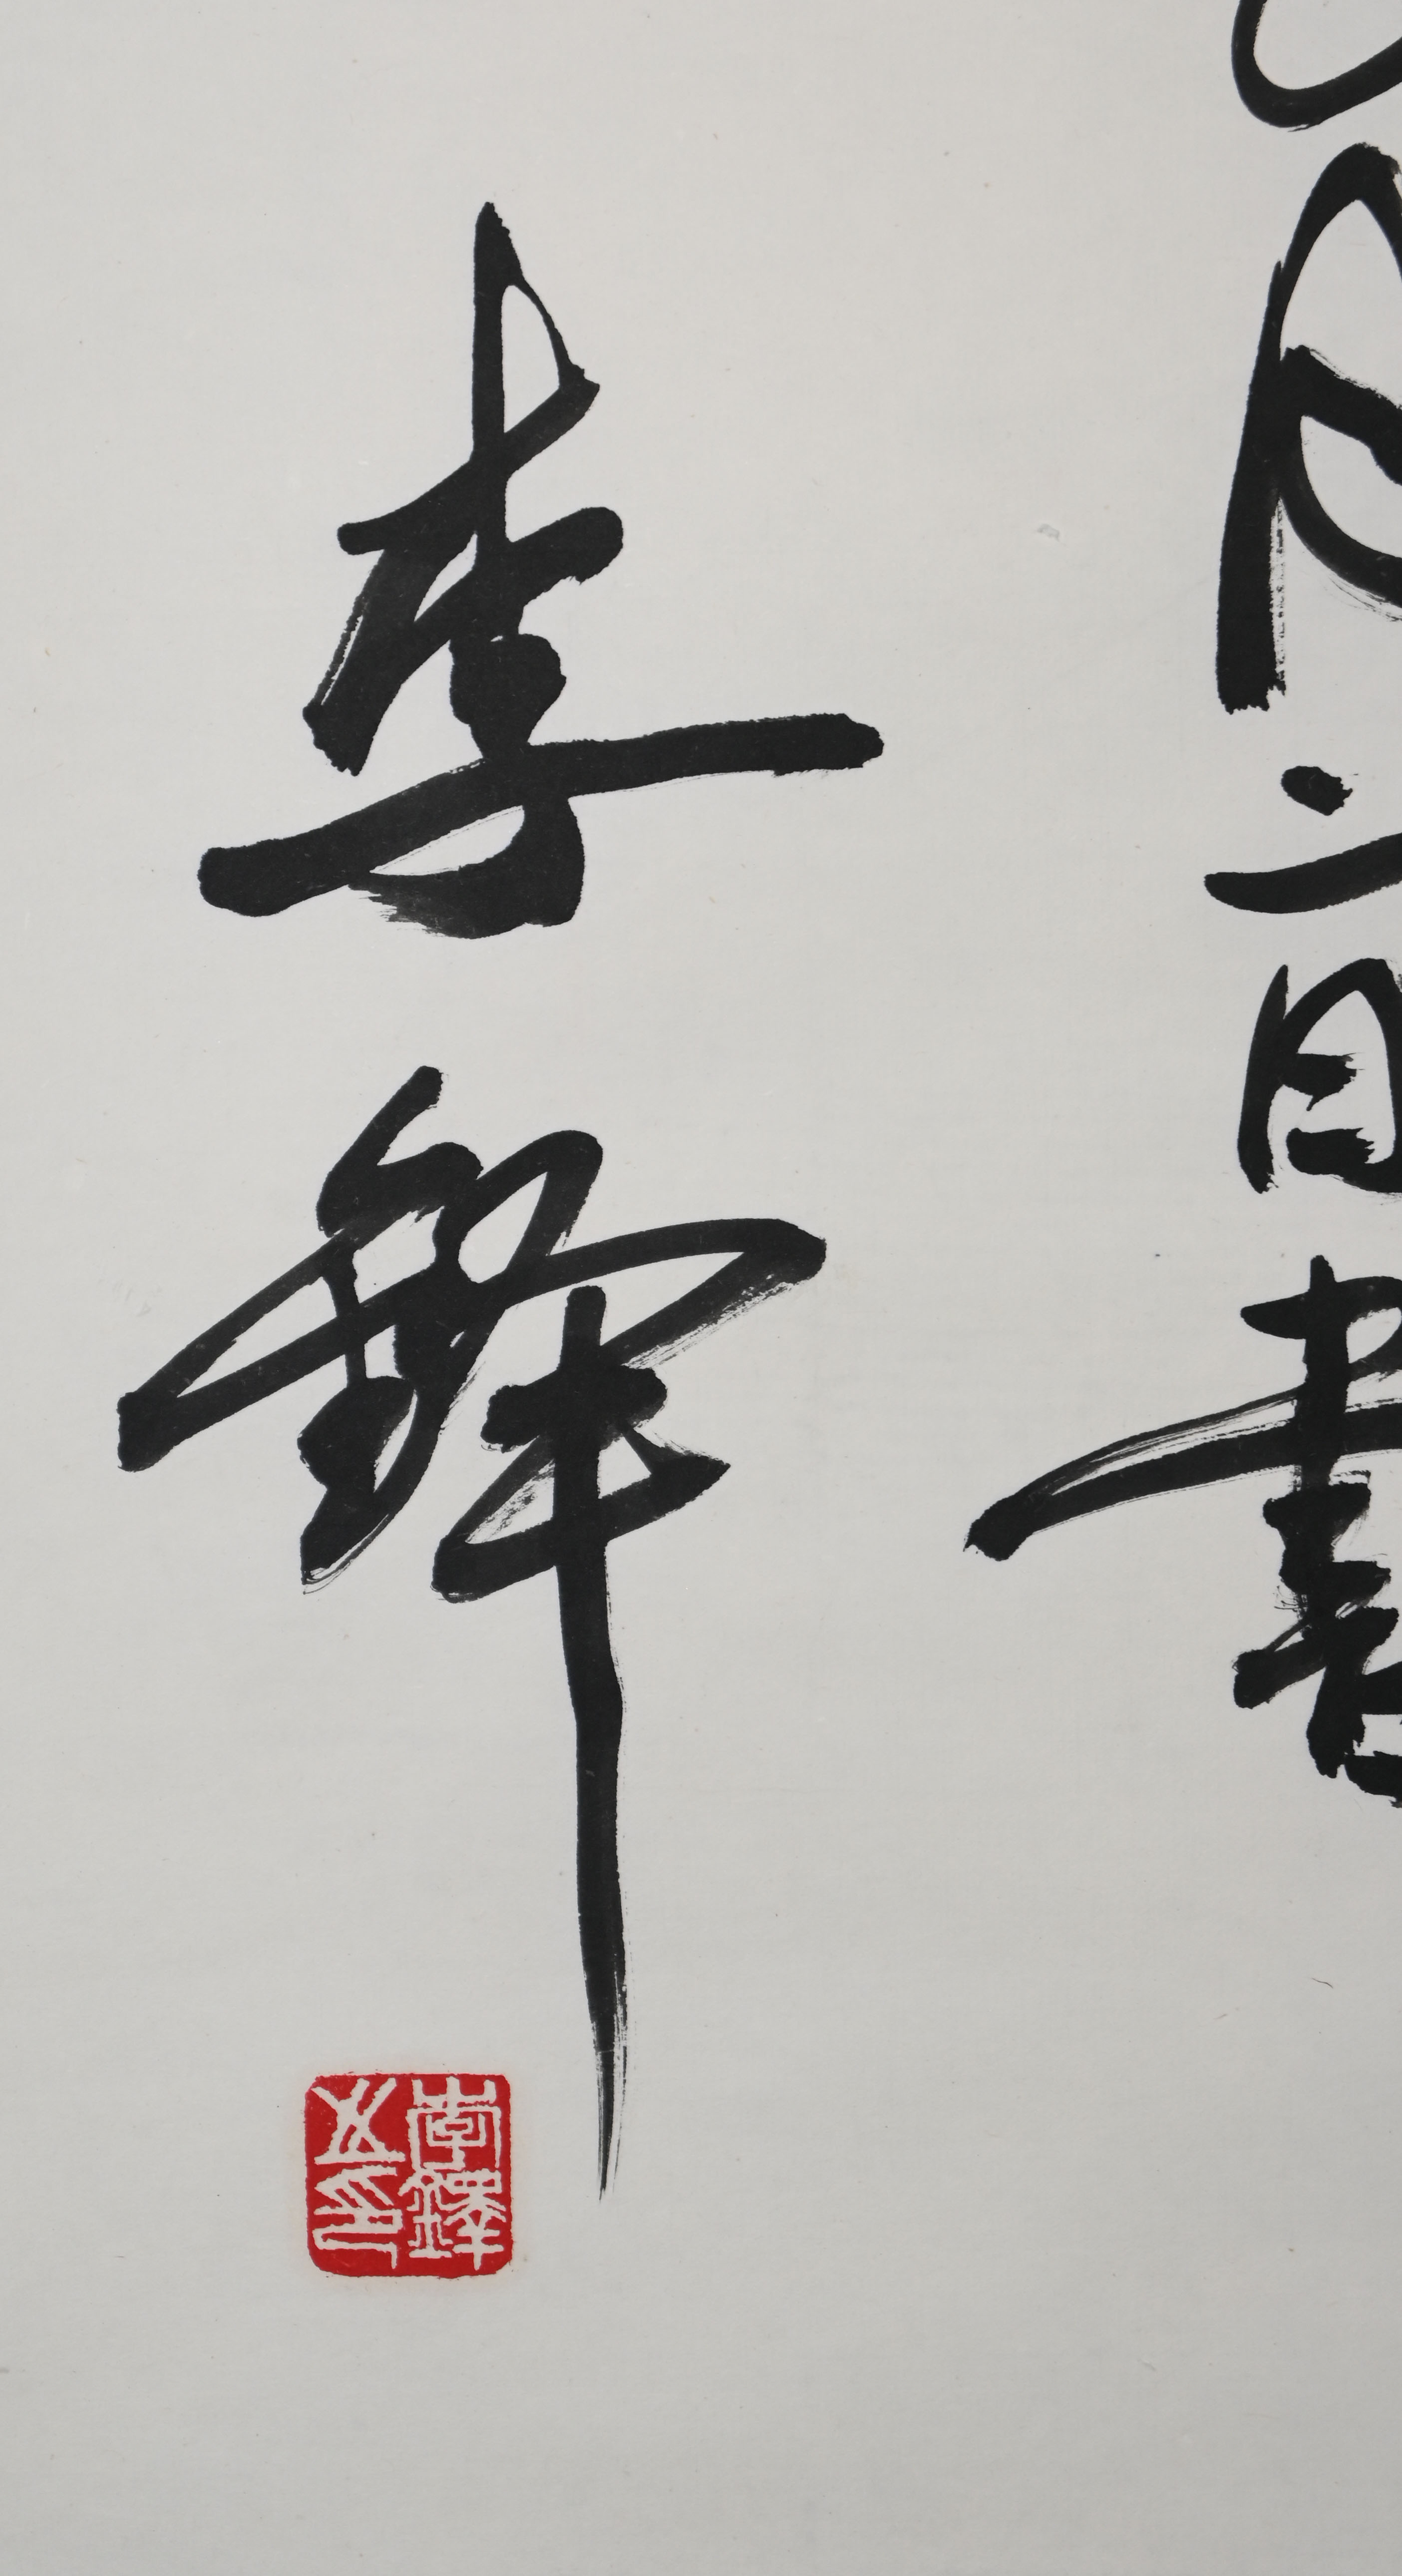 月二日書
李鐸
李鐸之印